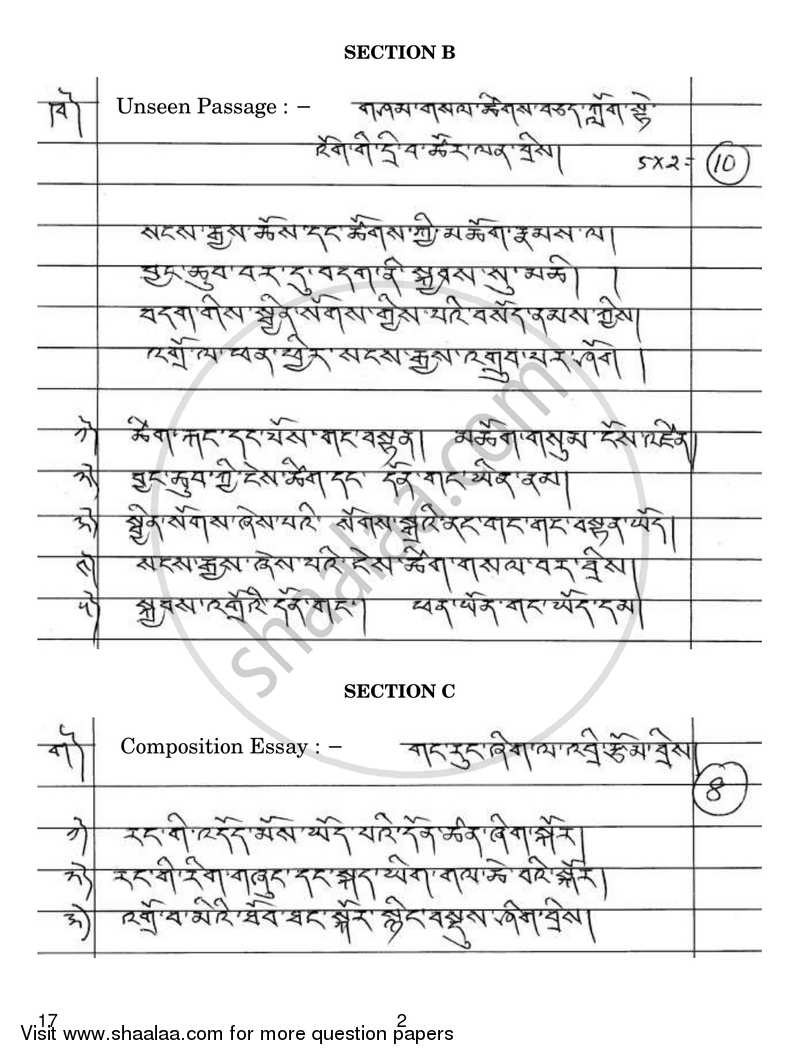 SECTION B
Unseen Passage : – གཤམ་གསལ་ཚིགས་བཅད་ཀློག་སྟེ་
འོག་གི་དྲི་བ་ཚོར་ལན་བྲིས། 5×2= 10
སངས་རྒྱས་ཆོས་དང་ཚོགས་ཀྱི་མཆོག་རྣམས་ལ།
བྱང་ཆུབ་བར་དུ་བདག་ནི་སྐྱབས་སུ་མཆི། །
བདག་གིས་སྦྱིན་སོགས་བགྱིས་པའི་བསོད་ནམས་ཀྱིས།
འགྲོ་ལ་ཕན་ཕྱིར་སངས་རྒྱས་འགྲུབ་པར་ཤོག །
ཚིག་རྐང་དང་པོས་གང་བསྟན། མཆོག་གསུམ་ངོས་འཛིན།
བྱང་ཆུབ་ཀྱི་ངེས་ཚིག་དང་ དོན་གང་ཡིན་ནམ།
སྦྱིན་སོགས་ཞེས་པའི་ སོགས་སྒྲའི་ནང་གང་གང་བསྟན་ཡོད།
སངས་རྒྱས་ཞེས་པའི་ངེས་ཚིག་གསལ་བར་བྲིས།
སྐྱབས་འགྲོའི་དོན་གང་། ཕན་ཡོན་གང་ཡོད་དམ།
SECTION C
Composition Essay : – གང་རུང་ཞིག་ལ་འབྲི་རྩོམ་བྲིས། 8
རང་གི་འདོད་མོས་ཡོད་པའི་དོན་ཚན་ཞིག་སྐོར།
རང་གི་རིག་གཞུང་དང་སྐད་ཡིག་གལ་ཆེ་བའི་སྐོར།
འགྲོ་བ་མིའི་ཐོབ་ཐང་སྐོར་སྙིང་བསྡུས་ཤིག་བྲིས།
17 2
Visit www.shaalaa.com for more question papers
shaalaa.com